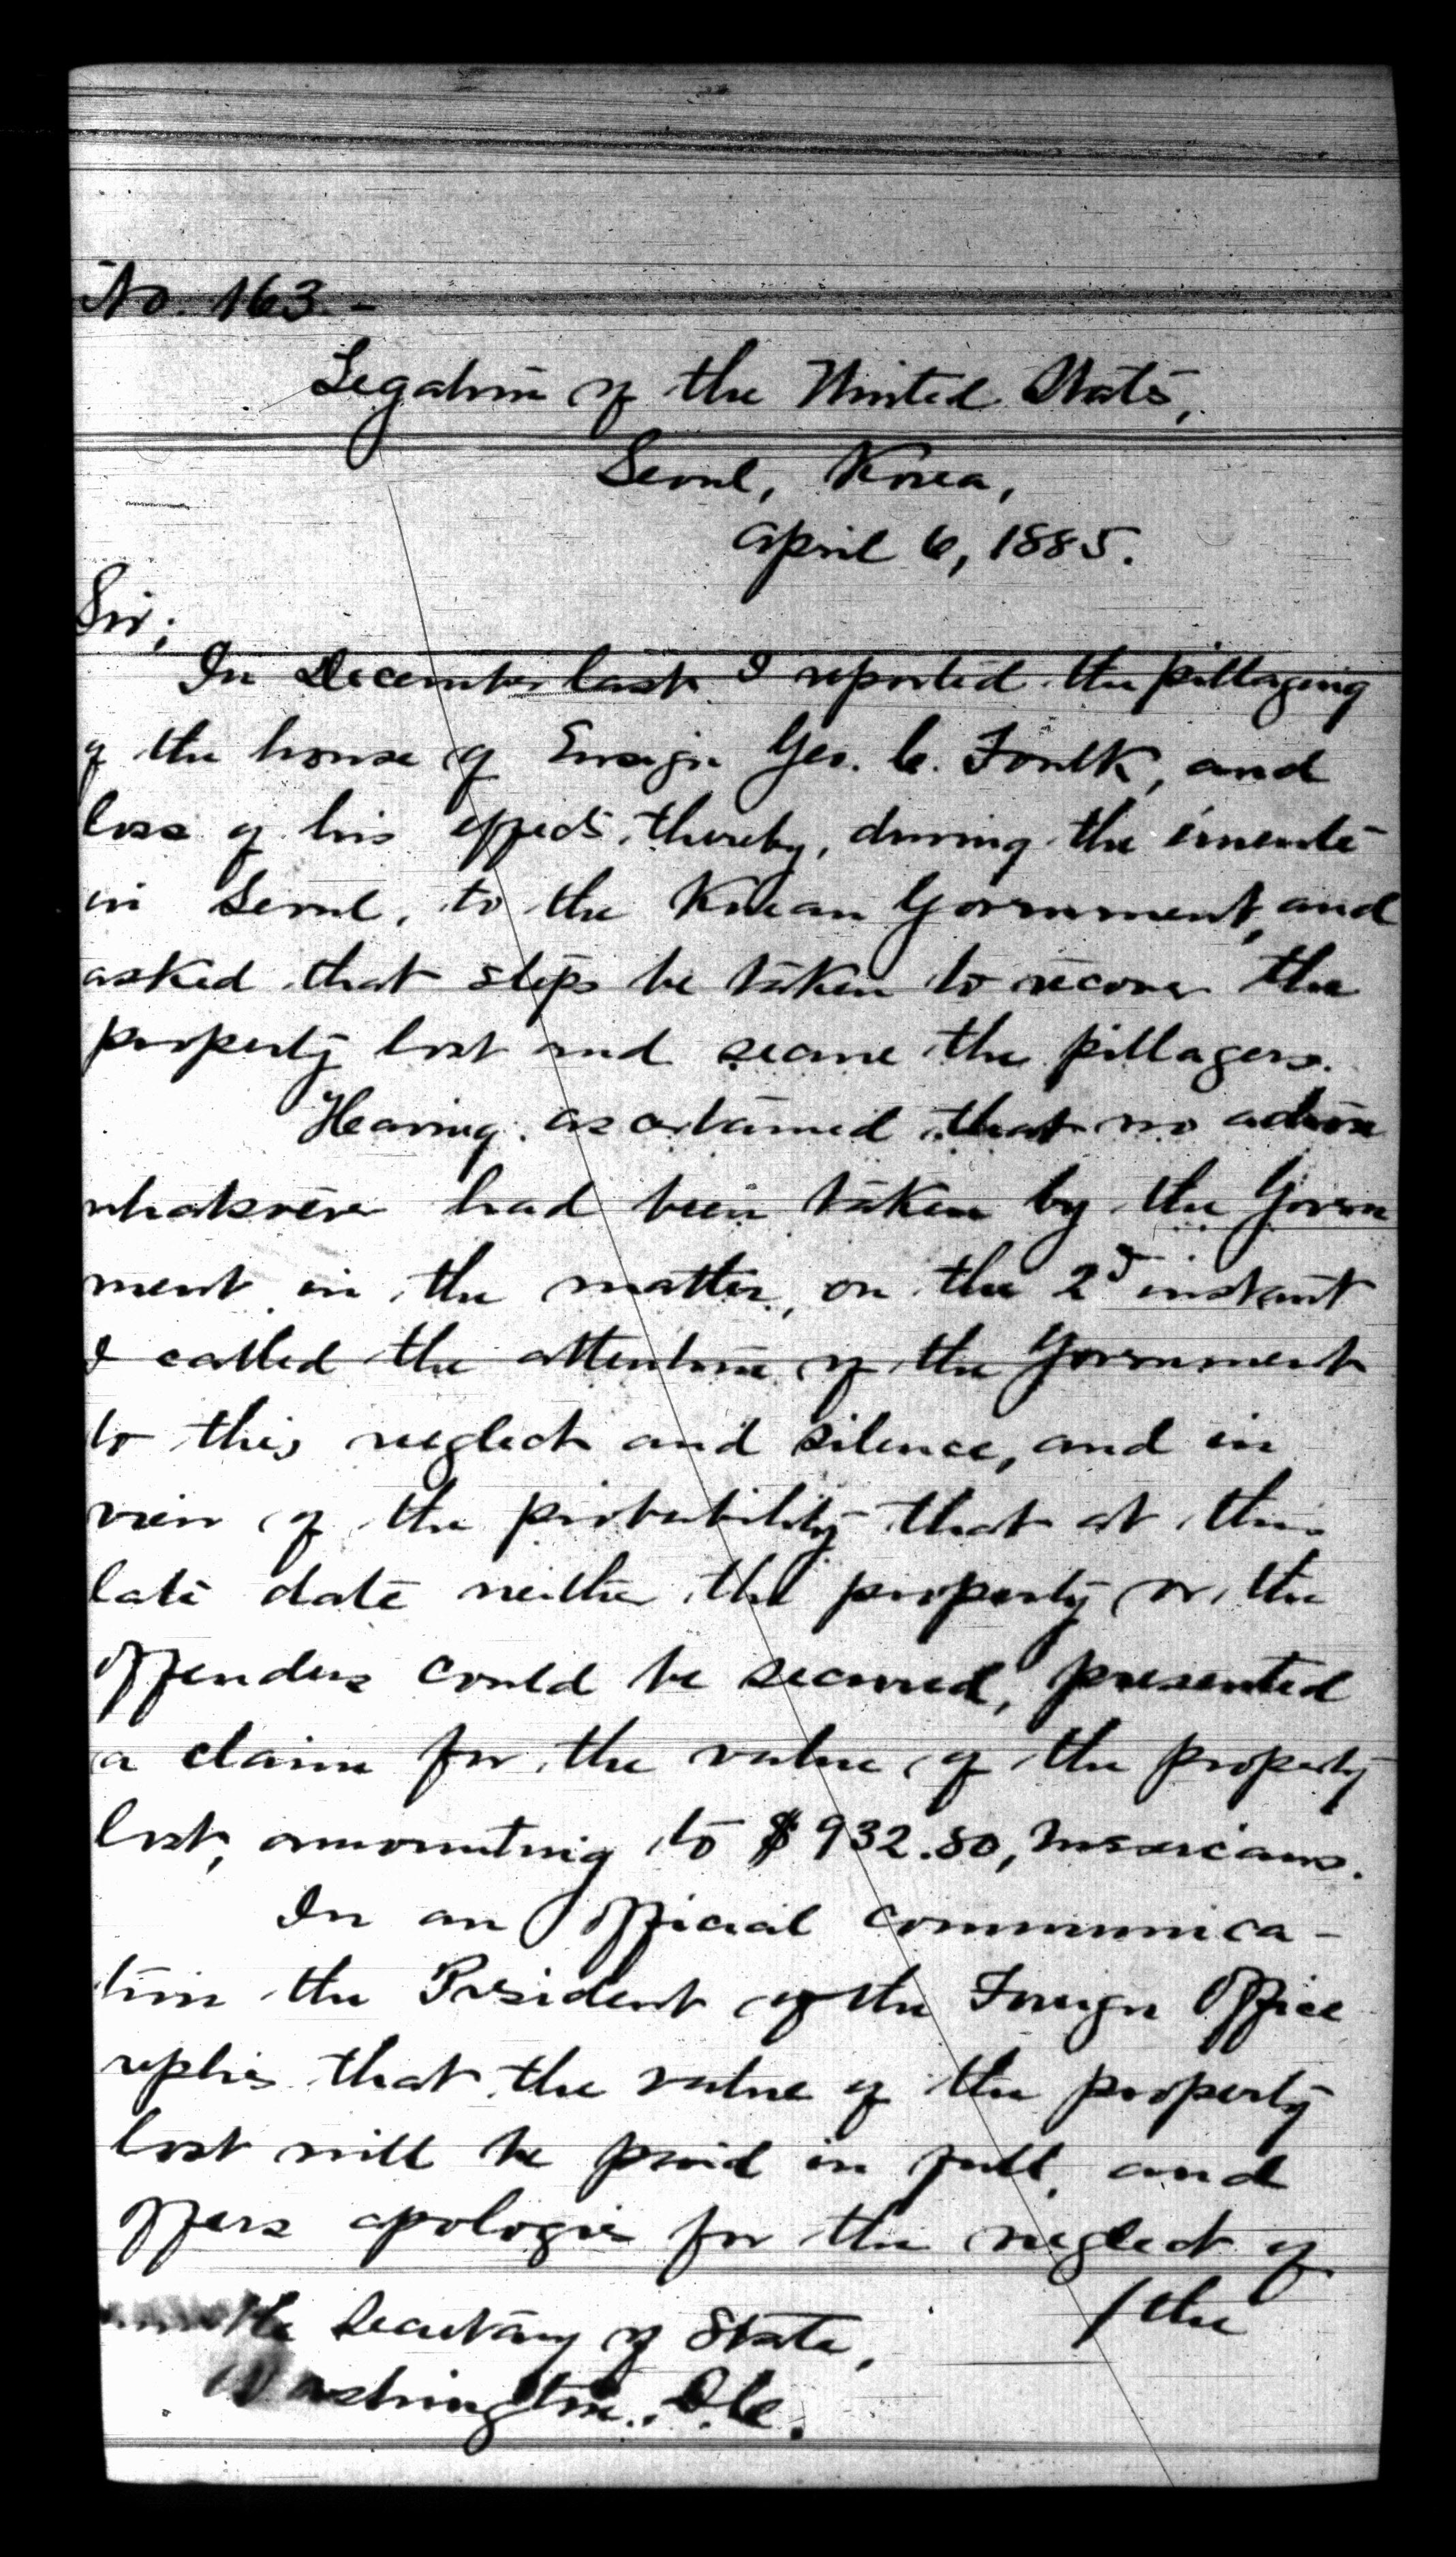 No. 163.-
Legation of the United States,
Seoul, Korea,
April 6, 1885.
Sir;
In December last I reported the pillaging
of the house of Ensign Geo. C. Foulk, and
loss of his effects thereby, during the émeute
in Seoul, to the Korean Government, and
asked that steps be taken to recover the
property lost and secure the pillagers.
Having ascertained that no action
whatsoever had been taken by the Govern
ment in the matter, on the 2d instant
I called the attention of the Government
to this neglect and silence, and in
view of the probability that at this
late date neither the property or the
offenders could be secured, presented
a claim for the value of the property
lost, amounting to $932.80, Mexicans.
In an official communica-
tion the President of the Foreign Office
replies that the value of the property
lost will be paid in full, and
offers apologies for the neglect of
/the
the Secretary of State,
Washington. D.C.